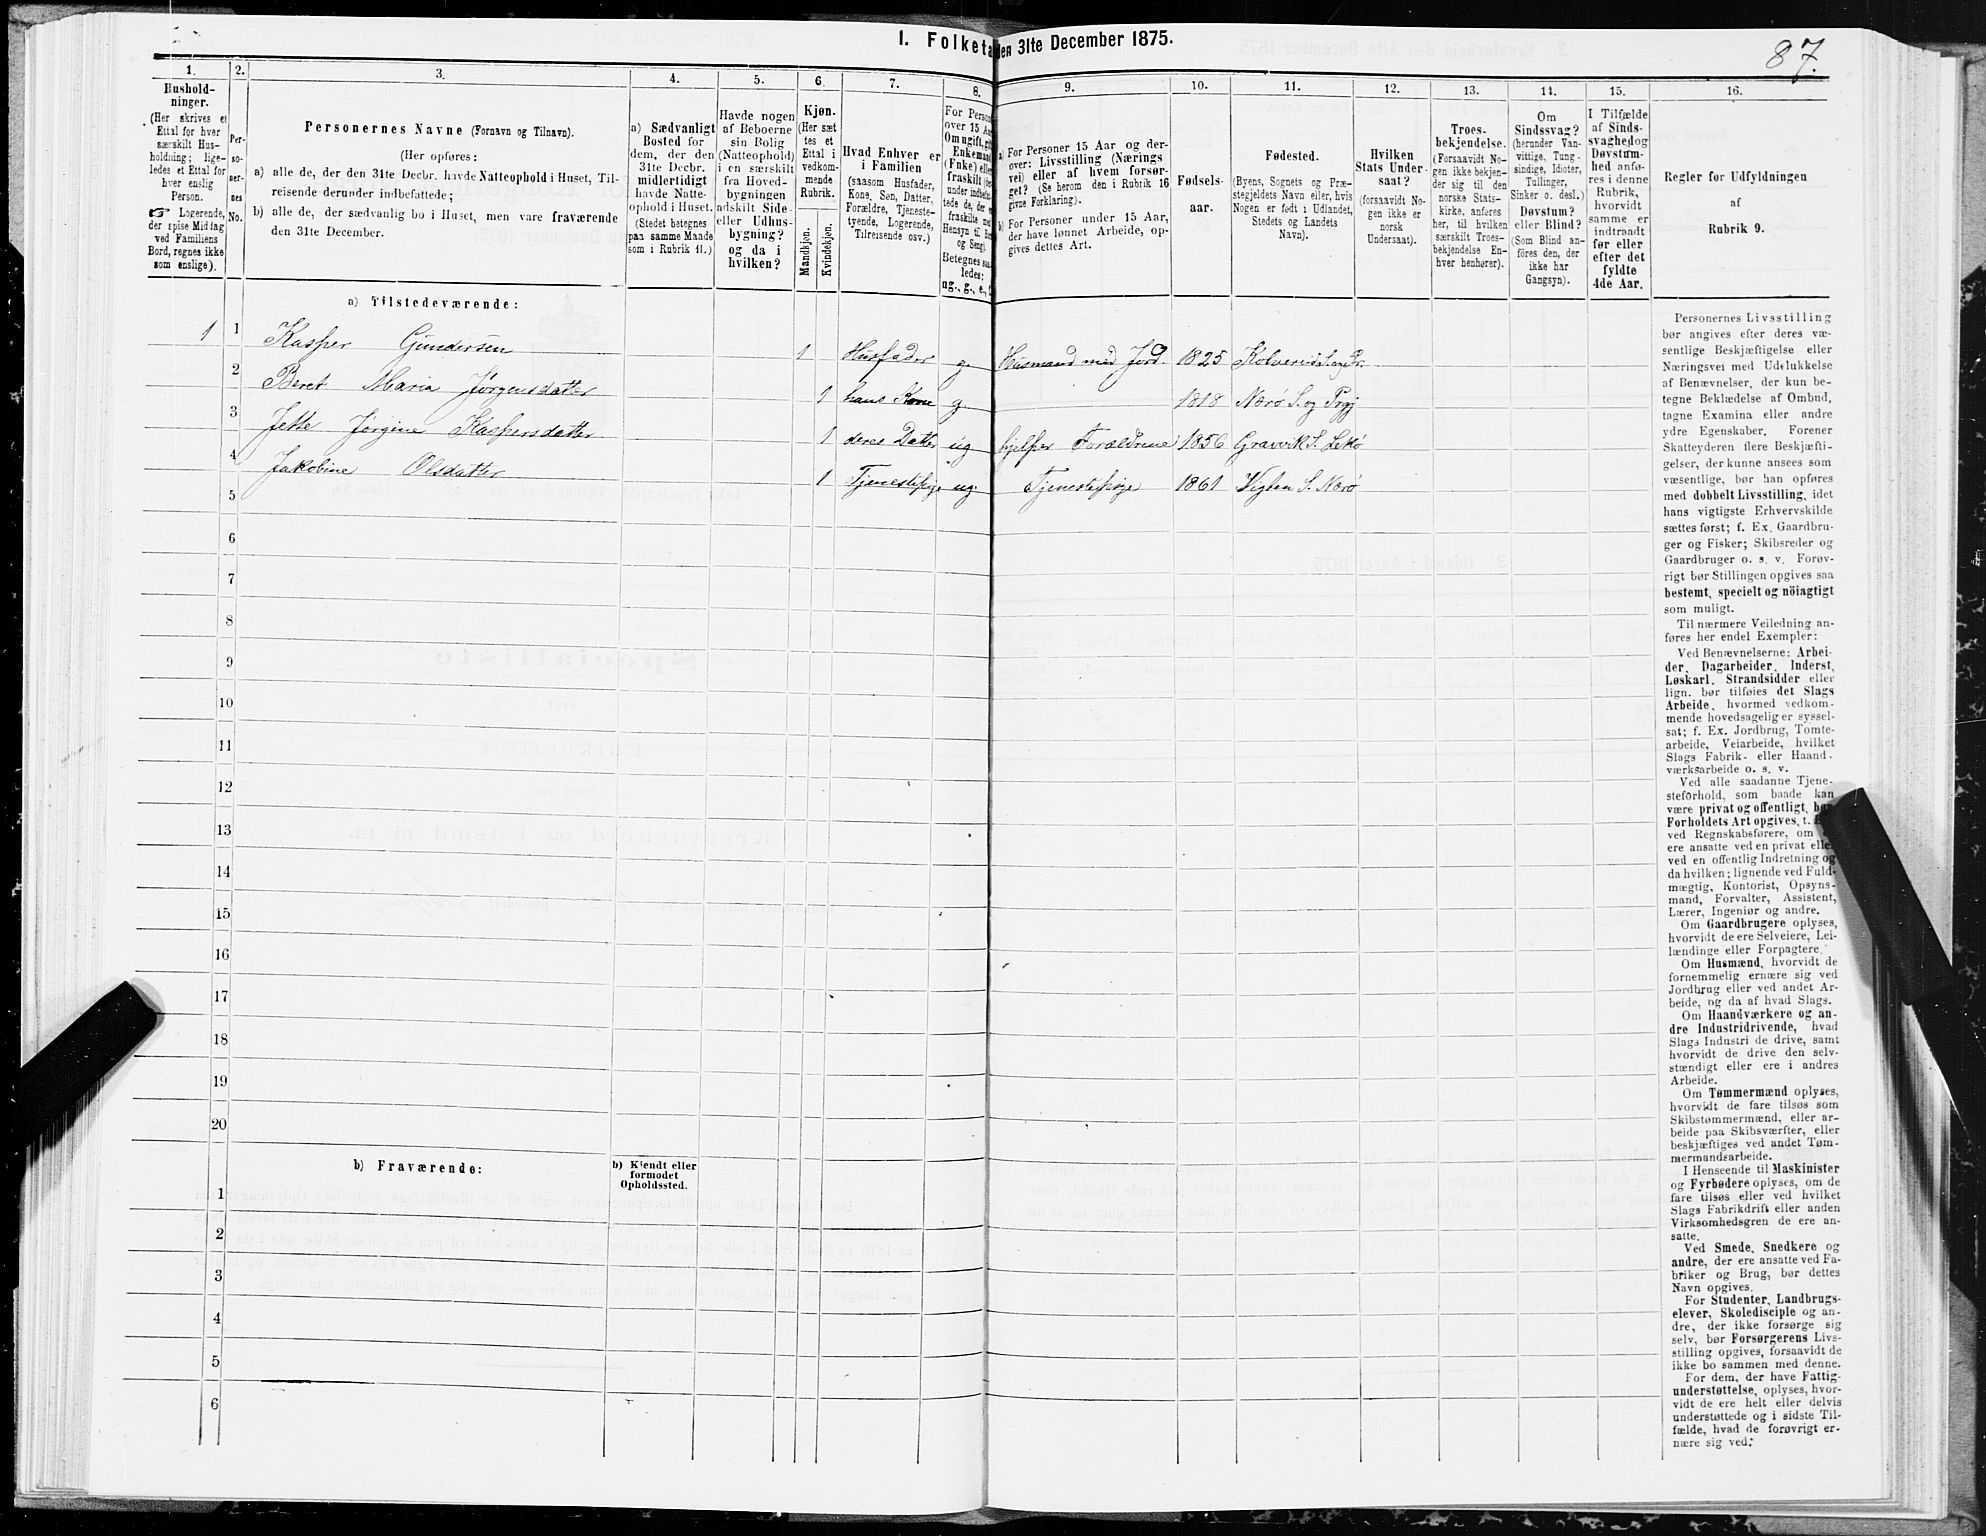 1. Folketa den 31te December 1875.
87.
1.
2.
3.
4.
5.
6.
7.
8.
9.
10.
11.
12.
13.
14.
15.
16.
Hushold-
ninger.
(Her skrives et
Ettal for hver
særskilt Hus-
holdning; lige-
ledes et Ettal for
hver enslig
Person.
☞ Logerende,
der spise Middag
ved Familiens
Bord, regnes ikke
som enslige).
Per-
so-
ner-
nes
No.
Personernes Navne (Fornavn og Tilnavn).
(Her opføres:
a) alle de, der den 31te Decbr. havde Natteophold i Huset, Til-
reisende derunder indbefattede;
b) alle de, der sædvanlig bo i Huset, men vare fraværende
den 31te December.
a) Sædvanligt
Bosted for
dem, der den
31te Decbr.
midlertidigt
havde Natte-
ophold i Huset.
(Stedet betegnes
paa samme Maade
som i Rubrik 11.)
Havde nogen
af Beboerne
sin Bolig
(Natteophold)
i en særskilt
fra Hoved-
bygningen
adskilt Side-
eller Udhus-
bygning?
og da i
hvilken?
Kjøn.
(Her sæt-
tes et
Ettal i
vedkom-
mende
Rubrik.
Mandkjøn.
Kvindekjøn.
Hvad Enhver er
i Familien
(saasom Husfader,
Kone, Søn, Datter,
Forældre, Tjeneste-
tyende, Logerende,
Tilreisende osv.)
For Person
over 15 Aa
Om ugift, gi
Enkemand
(Enke) eller
fraskilt
Betegnes saa-
ledes:
ug., g., e.,
a) For Personer 15 Aar og der-
over: Livsstilling (Nærings
vei) eller af hvem forsør-
get? (Se herom den i Rubrik 16
givne Forklaring).
b) For Personer under 15 Aar,
der have lønnet Arbeide, op-
gives dettes Art.
Fødsels-
aar.
Fødested.
(Byens, Sognets og Præ-
stegjeldets Navn eller, hvis
Nogen er født i Udlandet,
Stedets og Landets
Navn).
Hvilken
Stats Under-
saat?
(forsaavidt No-
gen ikke er
norsk
Undersaat).
Troes-
bekjendelse.
(Forsaavidt No-
gen ikke bekjen-
der sig til den
norske Stats-
kirke, anføres
her, til hvilken
særskilt Troes-
bekjendelse En-
hver henhører).
Om
Sindssvag?
(herunder Van-
vittige, Tung-
sindige, Idioter,
Tullinger,
Sinker o. desl.)
Døvstum?
eller Blind?
(Som Blind an-
føres den, der
ikke har
Gangsyn).
I Tilfælde
af Sinds-
svaghed og
Døvstum-
hed anfø-
res i denne
Rubrik,
hvorvidt
samme er
indtraadt
før eller
efter det
fyldte
4de Aar.
Regler for Udfyldningen
af
Rubrik 9.
a) Tilstedeværende:
1 1 Kasper Gundersen 1 Husfader g. Husmand med Jord. 1825
2 Beret Maria Jørgensdatter 1 hans Kone g 1818 Nærø S. og Prgj
3 Jette Jørgine Kaspersdatter 1 deres Datter ug hjelper Forældrene 1856 Gravvik S. Lekø
4 Jakobine Olsdatter 1 Tjenestepige ug. Tjenestepige 1861 Vigten S. Nærø
5
6
7
8
9
10
11
12
13
14
15
16
17
18
19
20
b) Fraværende:
b) Kjendt eller
formodet
Opholdssted.
1
2
3
4
5
6
Personernes Livsstilling
bør angives efter deres væ-
sentlige Beskjæftigelse eller
Næringsvei med Udelukkelse
af Benævnelser, der kun be-
tegne Beklædelse af Ombud,
tagne Examina eller andre
ydre Egenskaber. Forener
Skatteyderen flere Beskjæfti-
gelser, der kunne ansees som
væsentlige, bør han opføres
med dobbelt Livsstilling, idet
hans vigtigste Erhvervskilde
sættes først; f. Ex. Gaardbru-
ger og Fisker; Skibsreder og
Gaardbruger o. s. v. Forøv-
rigt bør Stillingen opgives saa
bestemt, specielt og nöiagtigt
som muligt.
Til nærmere Veiledning an-
føres her endel Exempler:
Ved Benævnelserne: Arbei-
der, Dagarbeider, Inderst,
Løskarl, Strandsidder eller
lign. bør tilføies det Slags
Arbeide, hvormed vedkom-
mende hovedsagelig er syssel-
sat; f. Ex. Jordbrug, Tomte-
arbeide, Veiarbeide, hvilket
Slags Fabrik- eller Haand-
værksarbeide o. s. v.
Ved alle saadanne Tjene-
steforhold, som baade kan
være privat og offentligt, bør
Forholdets Art opgives, t.
ved Regnskabsførere, om
ere ansatte ved en privat elle
ved en offentlig Indretning og
da hvilken; lignende ved Fuld-
mægtig, Kontorist, Opsyns-
mand, Forvalter, Assistent,
Lærer, Ingeniør og andre.
Om Gaardbrugere oplyses,
hvorvidt de ere Selveiere, Lei-
lændinge eller Forpagtere.
Om Husmænd, hvorvidt de
fornemmelig ernære sig ved
Jordbrug eller ved andet Ar-
beide, og da af hvad Slags.
Om Haandværkere og an-
dre Industridrivende, hvad
Slags Industri de drive, samt
hvorvidt de drive den selv-
stændigt eller ere i andres
Arbeide.
Om Tømmermænd oplyses,
hvorvidt de fare tilsøs som
Skibstømmermænd, eller ar-
beide paa Skibsværfter, eller
beskjæftiges ved andet Tøm-
mermandsarbeide.
I Henseende til Maskinister
og Fyrbødere oplyses, om de
fare tilsøs eller ved hvilket
Slags Fabrikdrift eller anden
Virksomhedsgren de ere an-
satte.
Ved Smede, Snedkere og
andre, der ere ansatte ved Fa-
briker og Brug, bør dettes
Navn opgives.
For Studenter, Landbrugs-
elever, Skoledisciple og an-
dre, der ikke forsørge sig
selv, bør Forsørgerens Livs-
stilling opgives, forsaavidt de
ikke bo sammen med denne.
For dem, der have Fattig-
understøttelse, oplyses, hvor-
vidt de ere helt eller delvis
understøttede og i sidste Til-
fælde, hvad de forøvrigt er-
nære sig ved.